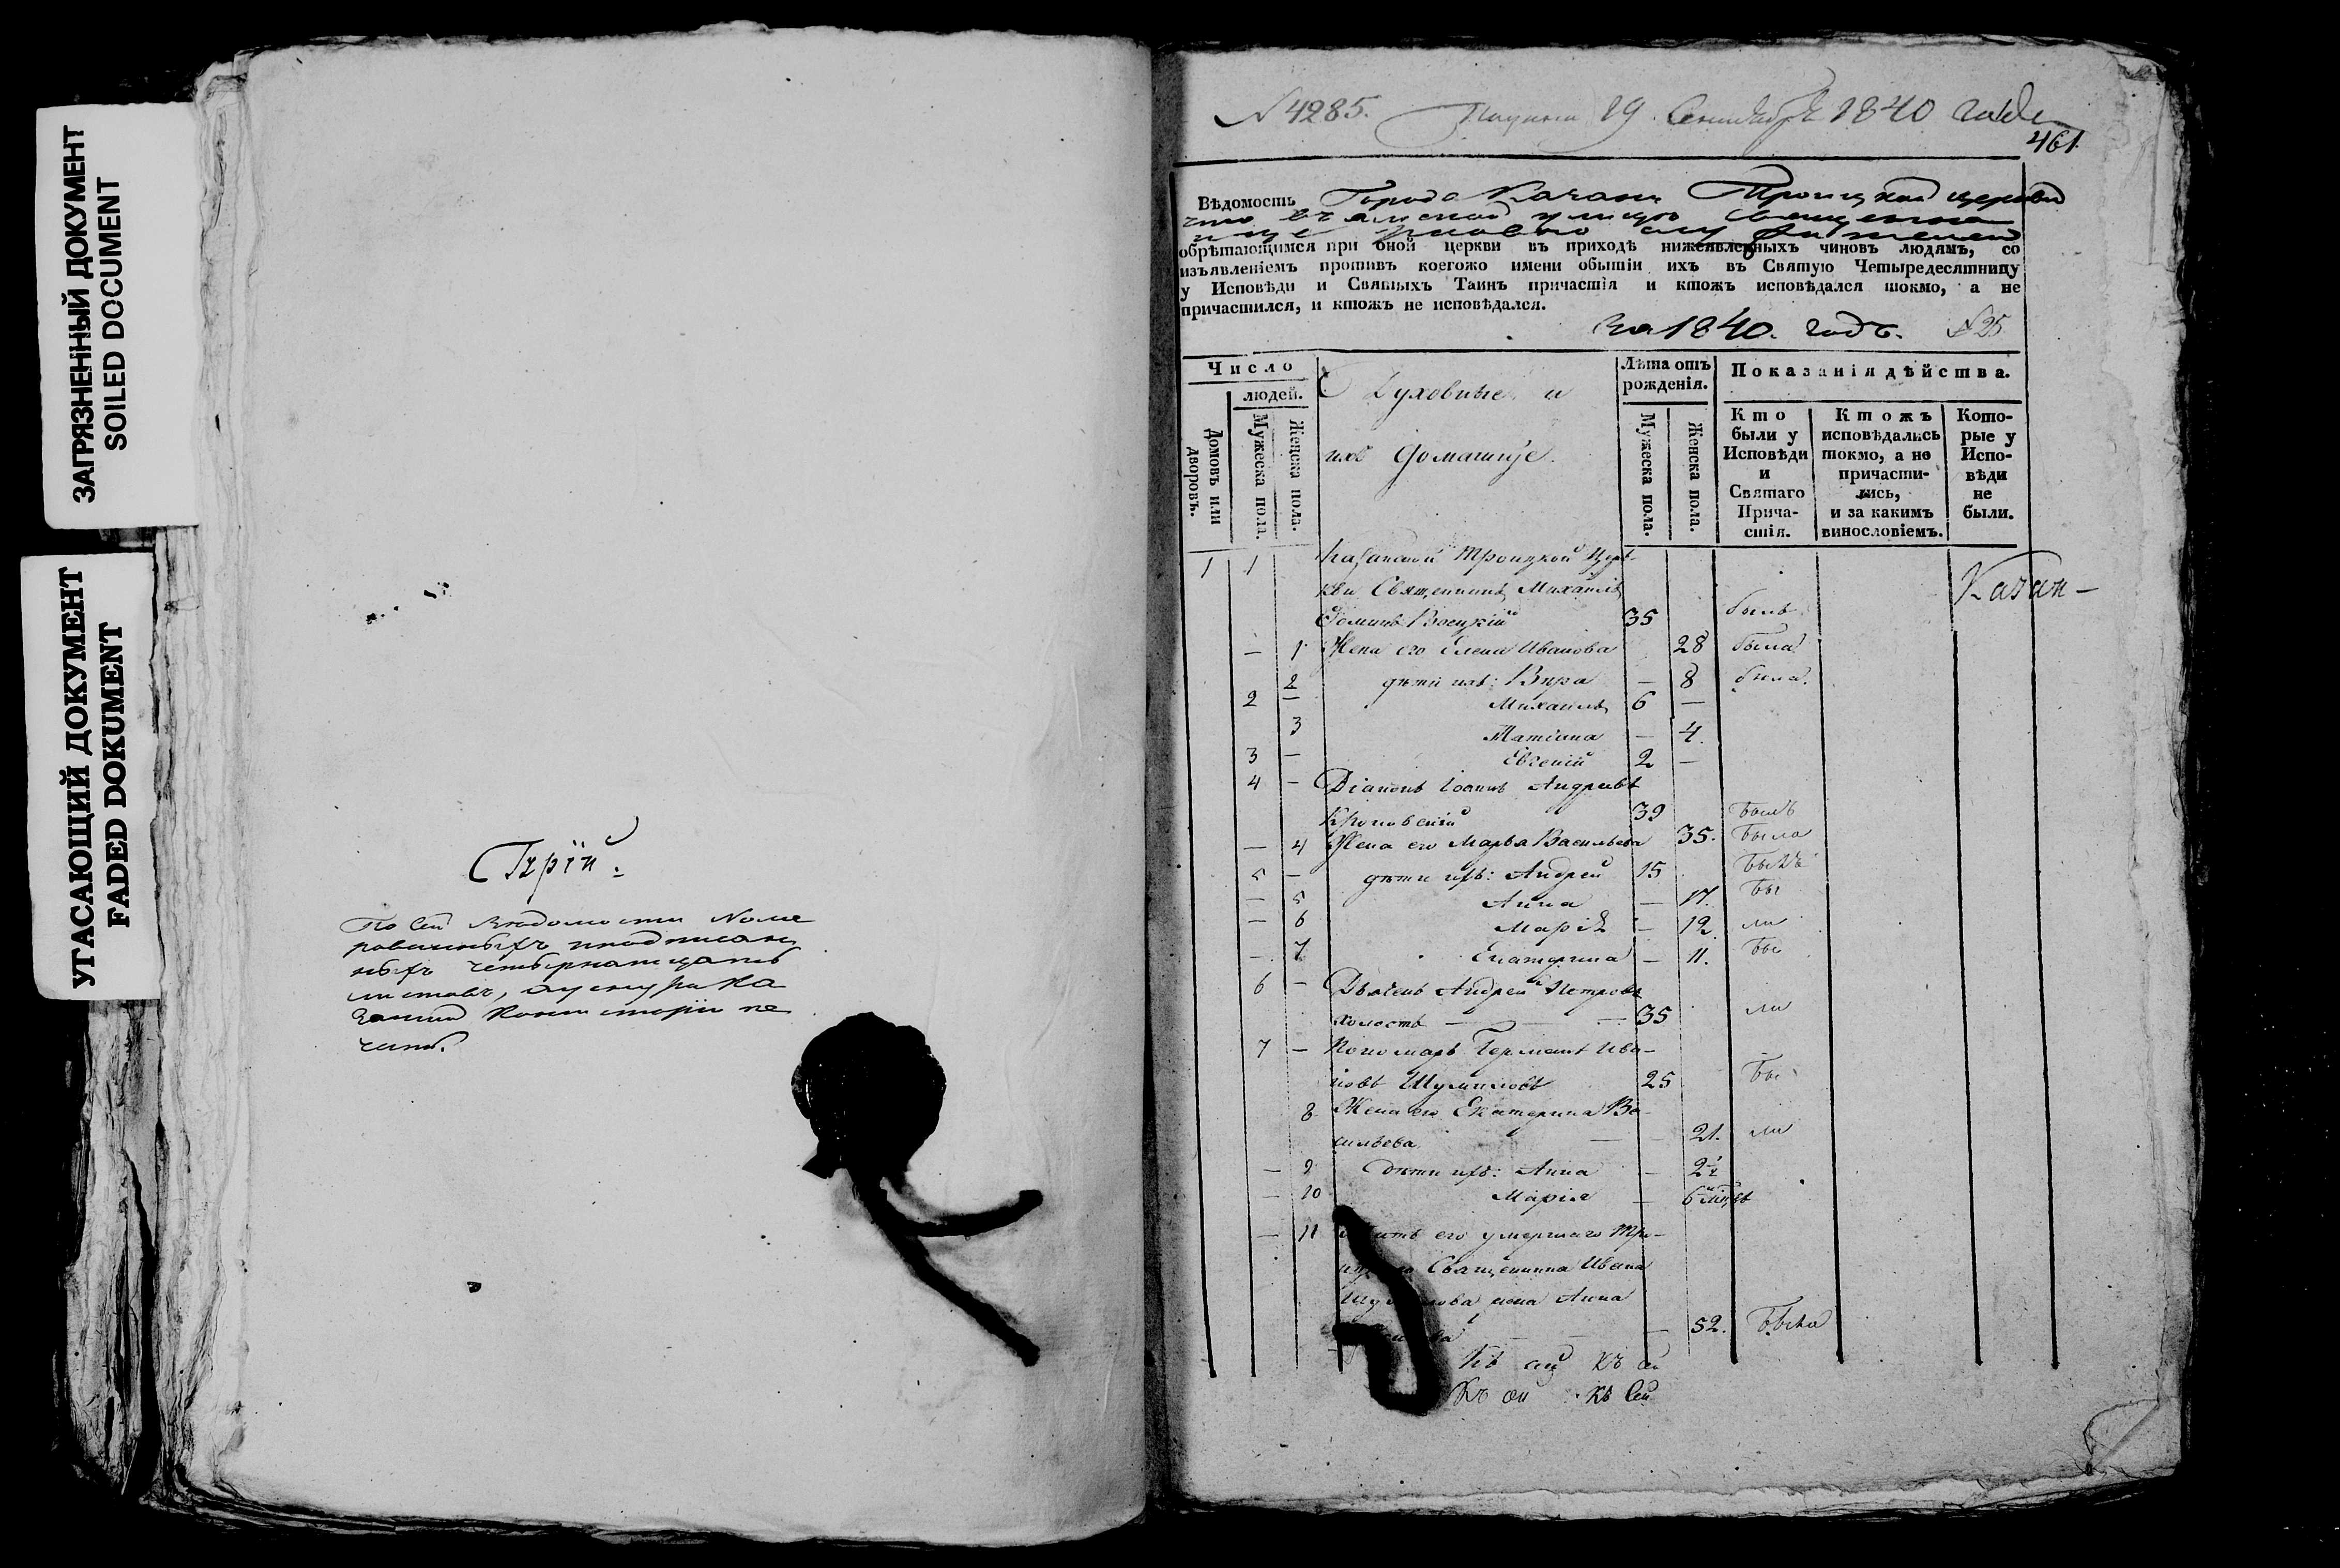 ЗАГРЯЗНЕННЫЙ ДОКУМЕНТ
SOILED DOCUMENT
УГАСАЮЩИЙ ДОКУМЕНТ
FADED DOKUMENT
По сей Ведомости Номе
рованныхъ и подписан
ныхъ четырнатцать
листовъ, а у снурка
Казанской Консисторіи пе
чать.
N 4285. 19 Сентября 1840 года
461
Вѣдомость Города Казани Троицкой церкви
что въ Ямской улицѣ Священно
обрѣтающимся при оной церкви въ приходѣ нижеявленныхъ чиновъ людямъ, со
изъявленіемъ противъ коегожо имени обытіи ихъ въ Святую Четыредесятницу
у Исповѣди и Святыхъ Таинъ причастія и ктожъ исповѣдался токмо, а не
причастился, и ктожъ не исповѣдался.
За 1840. годъ. N 25
Число
людей.
Домовъ или дворовъ.
Мужеска пола.
Женска пола.
Духовные и
ихъ домашніе.
Лѣта отъ
рожденія.
Мужеска пола.
Женска пола.
Показанія дѣйства.
Кто
были у
Исповѣди
и
Святаго
Прича-
стія.
Ктожъ
исповѣдались
токмо, а не
причасти-
лись,
и за какимъ
винословіемъ.
Кото-
рые у
Испо-
вѣди
не
были.
1 1 Казанской Троицкой Церк-
Казан-
ви Священникъ Михаилъ
35 былъ
— 1 Жена его Елена Иванова 28 была
2 дѣти ихъ: Вѣра — 8 была
2 — Михаилъ 6 —
3 Татіана — 4.
3 — Евгеній 2 —
4 — Діаконъ Іоаннъ Андреевъ
39 былъ
— 4 Жена его Марья Васильева 35. была
5 — дѣти ихъ: Андрей 15 былъ
— 5 Анна — 17. бы
— 6 Марія — 12 ли
— 7 Екатерина — 11. бы
6 — Дьячекъ Андрей Петровъ
холостъ — — 35 ли
7 — Пономарь Германъ Ива-
новъ Шумиловъ 25 бы
8 Жена его Екатерина Ва-
сильева — 21. ли
— 9 дѣти ихъ: Анна — 2½
— 10 Марія — 6 мц.
— 11 Мать его умершаго
Священника Ивана
жена Анна
— 52. была
Къ сей къ сей
Къ сей къ сей